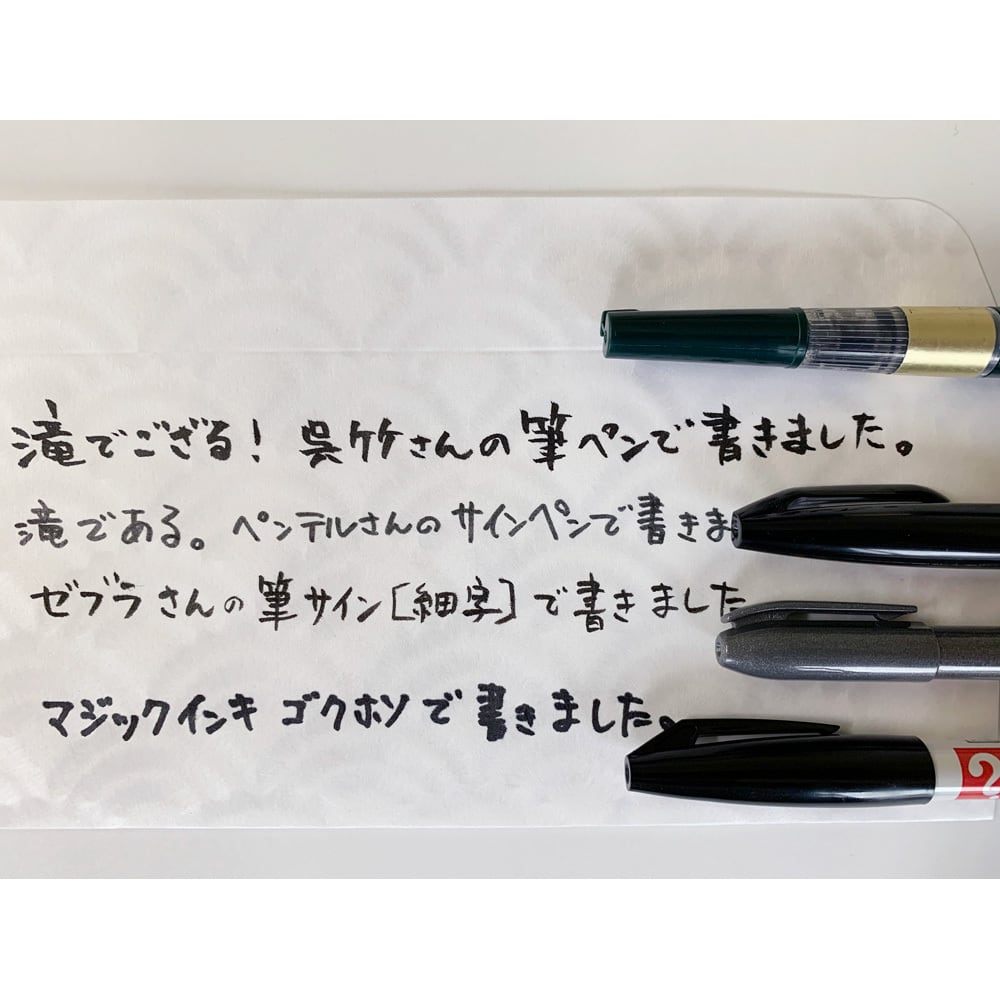 滝でござる! 呉竹さんの筆ペンで書きました。
滝である。ペンテルさんのサインペンで書きま
ゼブラさんの筆サイン[細字]で書きました
マジックインキ ゴクホソで書きました。